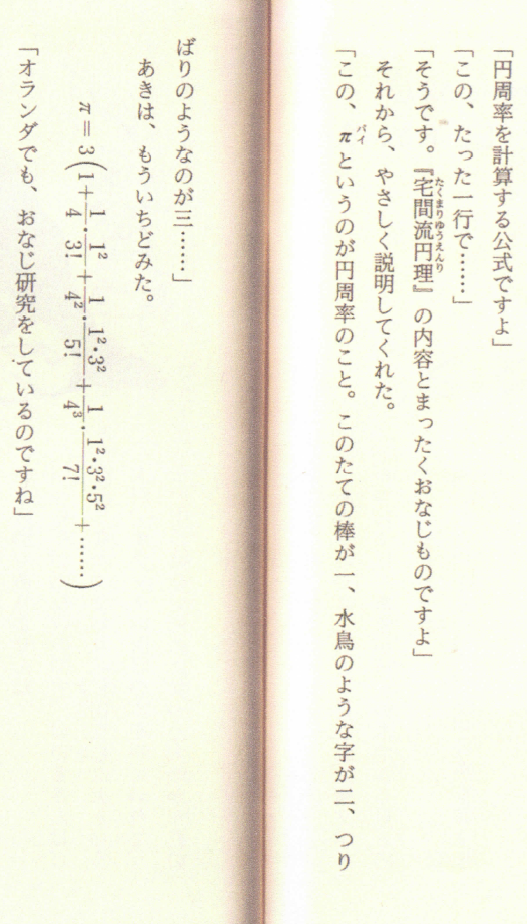 「円周率を計算する公式ですよ」
「この、たった一行で……」
「そうです。『宅間流円理』の内容とまったくおなじものですよ」
それから、やさしく説明してくれた。
「この、πというのが円周率のこと。このたての棒が一、水鳥のような字が二、つり
ばりのようなのが三……」
あきは、もういちどみた。
π = 3(1 + 1/4・1²/3! + 1/4²・1²・3²/5! + 1/4³・1²・3²・5²/7! + ……)
「オランダでも、おなじ研究をしているのですね」